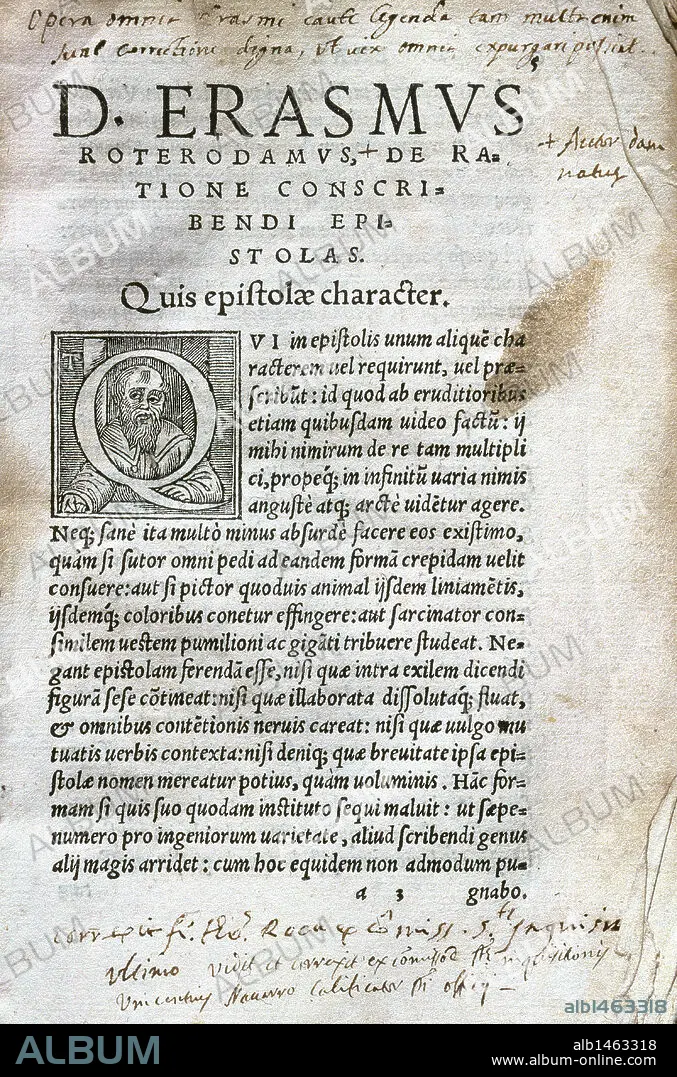 Opera omnia Erasmi caute legenda tam multa enim
sunt correctione digna, ut vix omnia expurgari possint.
D. ERASMVS
ROTERODAMVS,+ DE RA=
+ Auctor dam
natus
TIONE CONSCRI=
BENDI EPI=
STOLAS.
Quis epistolæ character.
QVI in epistolis unum aliquẽ cha
racterem uel requirunt, uel præ=
scribũt: id quod ab eruditioribus
etiam quibusdam uideo factũ: ij
mihi nimirum de re tam multipli
ci, propeq; in infinitũ uaria nimis
angustè atq; arctè uidẽtur agere.
Neq; sanè ita multò minus absurdè facere eos existimo,
quám si sutor omni pedi ad eandem formã crepidam uelit
consuere: aut si pictor quoduis animal ijsdem liniamẽtis,
ijsdemq́; coloribus conetur effingere: aut sarcinator con=
similem uestem pumilioni ac gigãti tribuere studeat. Ne=
gant epistolam ferendã esse, nisi quæ intra exilem dicendi
figurã sese cõtineat: nisi quæ illaborata dissolutaq́; fluat,
& omnibus contẽtionis neruis careat: nisi quæ uulgo mu
tuatis uerbis contexta: nisi deniq; quæ breuitate ipsa epi=
stolæ nomen mereatur potius, quàm uoluminis. Hãc for=
mam si quis suo quodam instituto sequi maluit: ut sæpe=
numero pro ingeniorum uarietate, aliud scribendi genus
alij magis arridet: cum hoc equidem non admodum pu=
a 3 gnabo.
Roca ex
ultimo vidit et correxit ex
Vincentius Navarro calificator
ALBUM
alb1463318
ALBUM
alb1463318
www.album-online.com